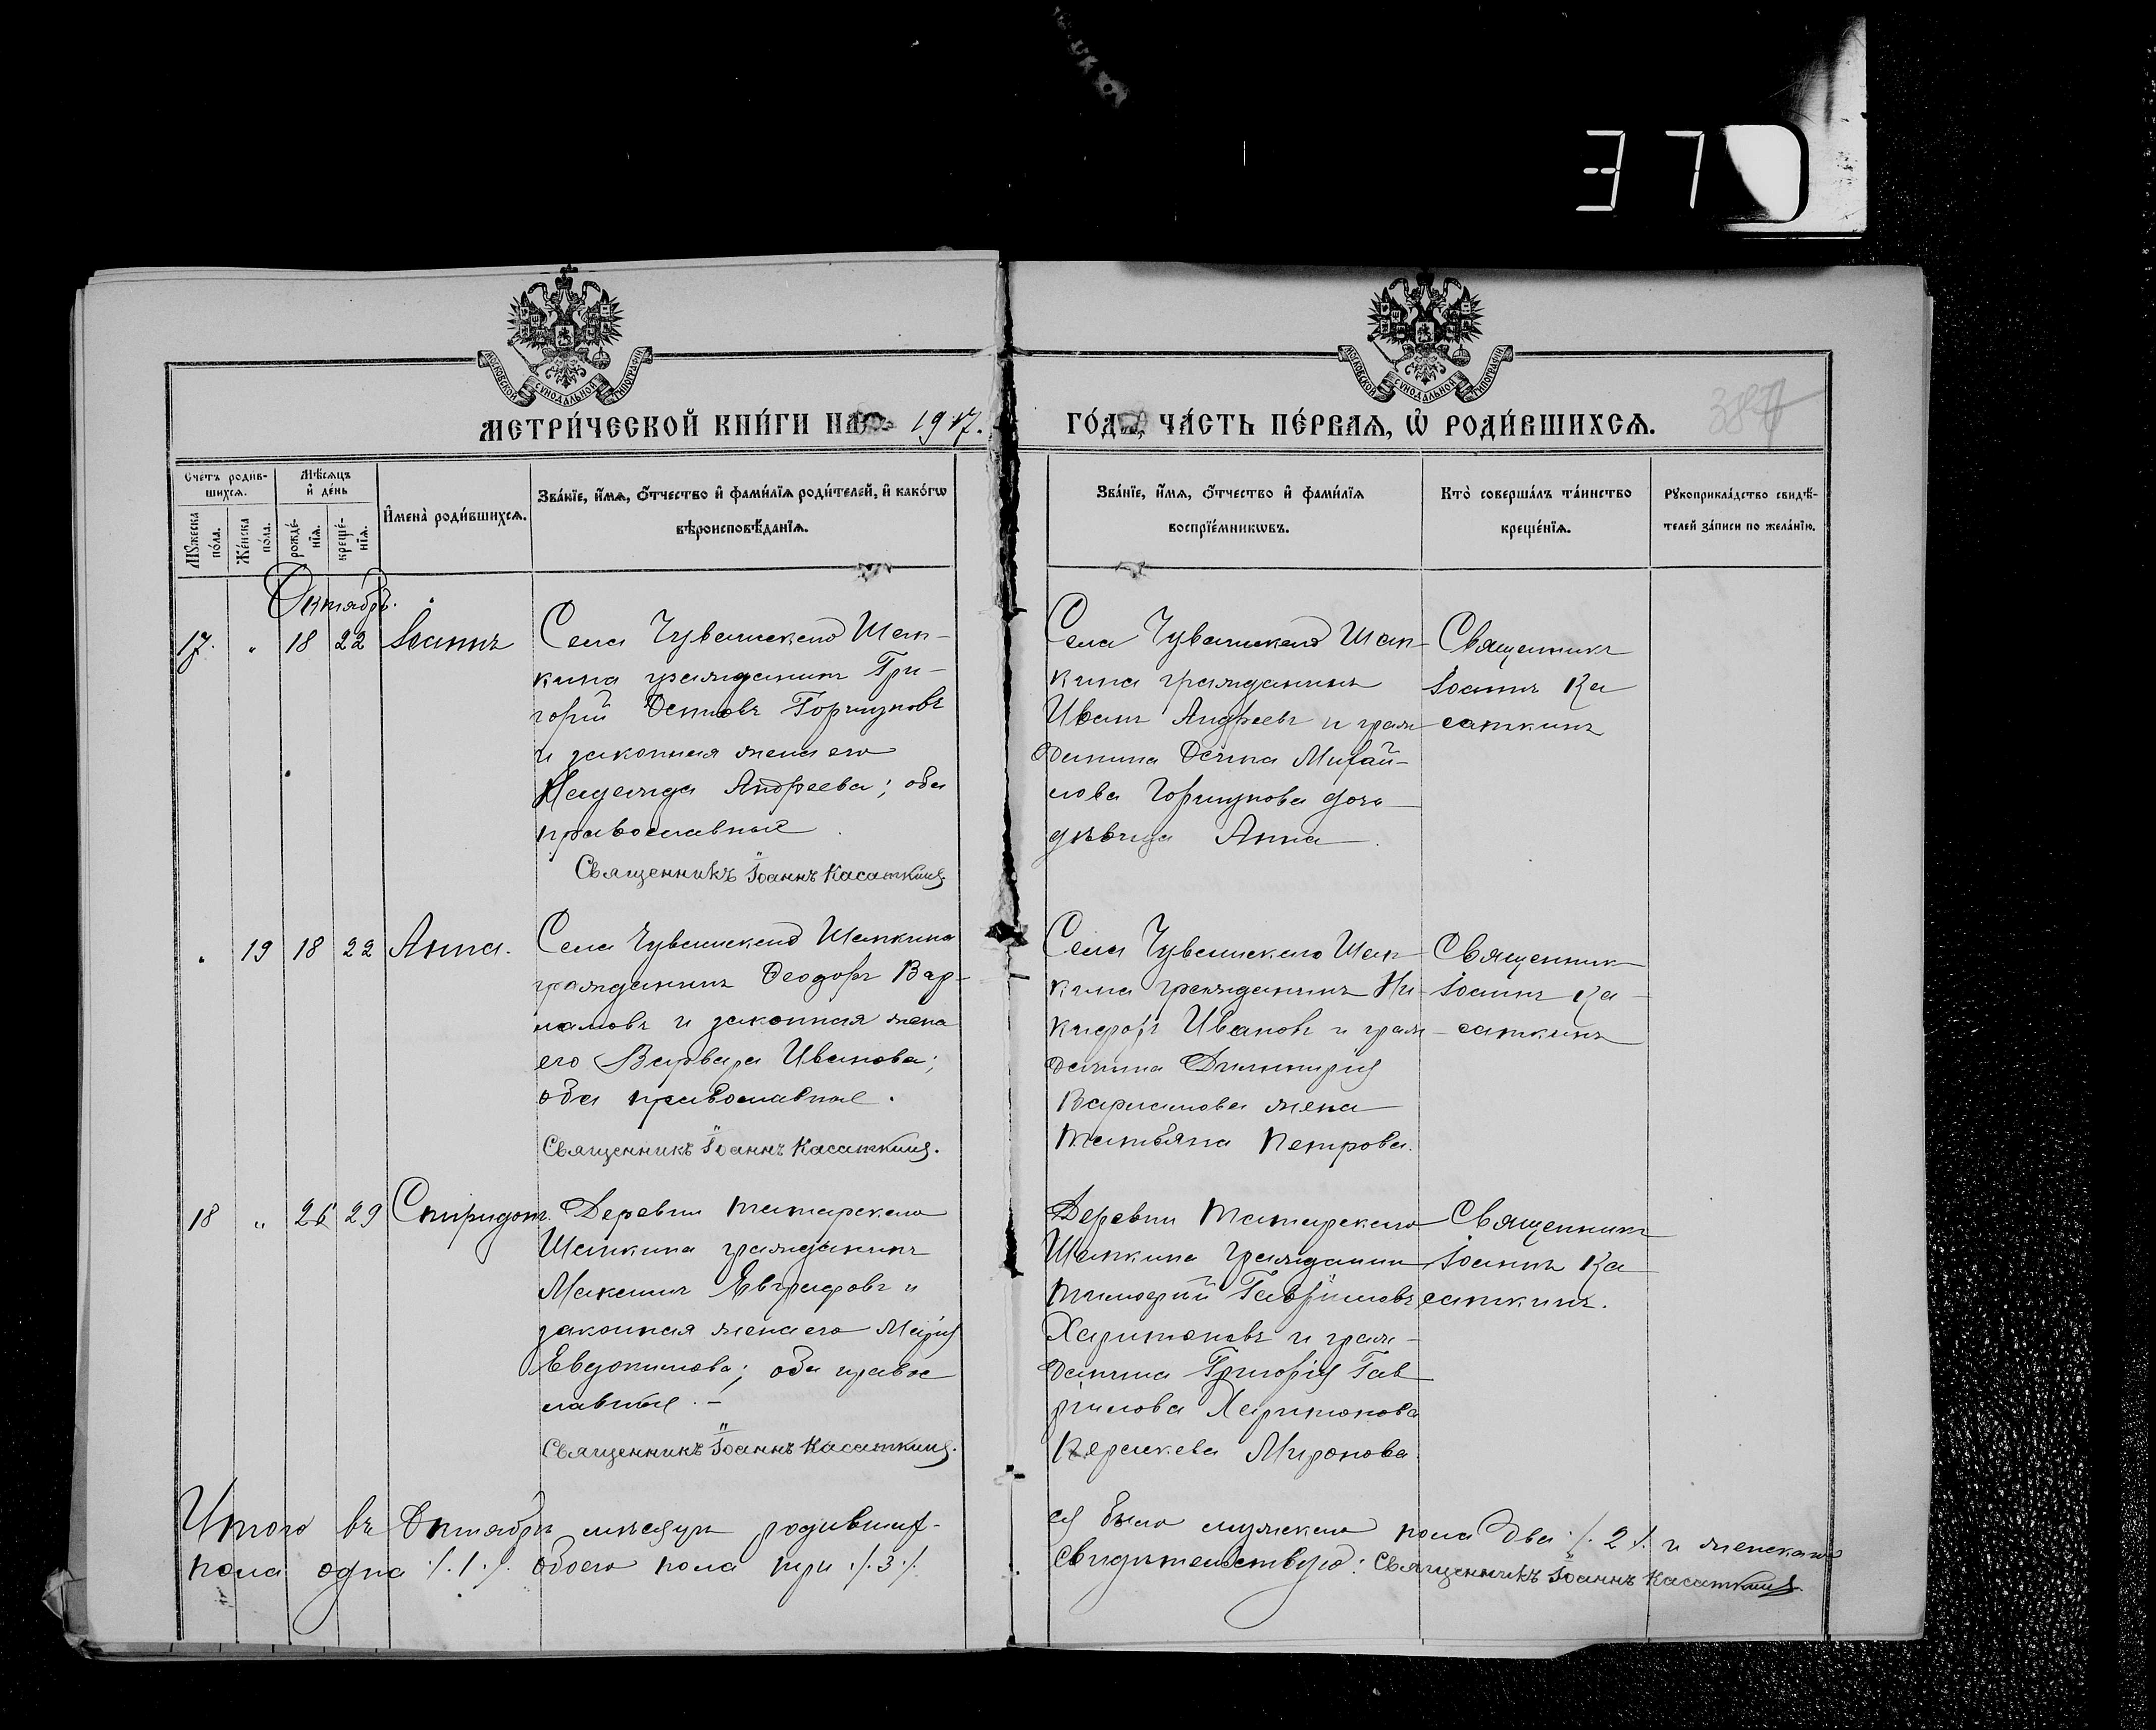 370
МОСКОВСКОЙ СѴНОДАЛЬНОЙ ТИПОГРАФІИ
МОСКОВСКОЙ СѴНОДАЛЬНОЙ ТИПОГРАФІИ
МЕТРИ́ЧЕСКОЙ КНИ́ГИ НА 1917.
ГО́ДЪ, ЧА́СТЬ ПЕ́РВАѦ, Ѡ҆ РОДИ́ВШИХСѦ.
Сче́тъ роди́в-
шихсѧ.
Мꙋ́жеска по́ла.
Же́нска по́ла.
Мѣ́сѧцъ и҆ де́нь
рожде́-
нїѧ.
креще́-
нїѧ.
И҆мена̀ роди́вшихсѧ.
Зва́нїе, и҆́мѧ, ѻ҆́тчество и҆ фами́лїѧ роди́телей, и҆ како́гѡ
вѣроисповѣ́данїѧ.
Зва́нїе, и҆́мѧ, ѻ҆́тчество и҆ фами́лїѧ
воспрїе́мникѡвъ.
Кто̀ соверша́лъ та́инство
креще́нїѧ.
Рꙋкоприкла́дство свидѣ́-
телей за́писи по жела́нїю.
Октябрь.
17. " 18 22 Іоаннъ
Села Чувашскаго Шап-
кина гражданинъ Гри-
горій Горшуновъ
и законная жена его
Надежда Андреева; оба
православные
Священникъ Іоаннъ Касаткинъ.
Села Чувашскаго Шап-
кина гражданинъ
Иванъ Андреевъ и граж
данина Михай-
лова Горшунова дочь
дѣвица Анна.
Священникъ
Іоаннъ Ка
саткинъ
" 19 18 22 Анна.
Села Чувашскаго Шапкина
гражданинъ Ѳеодоръ Вар-
ламовъ и законная жена
его Варвара Иванова;
оба православные.
Священникъ Іоаннъ Касаткинъ.
Села Чувашскаго Шап
кина гражданинъ Ни-
кифоръ Ивановъ и граж
данина Димитрія
Варламова жена
Татьяна Петрова.
Священник
Іоаннъ Ка-
саткинъ
18 " 26 29 Спиридонъ.
Деревни Татарскаго
Шапкина гражданинъ
Максимъ Евграфовъ и
законная жена его Марія
Евдокимова; оба право
славные. -
Священникъ Іоаннъ Касаткинъ.
Деревни Татарскаго
Шапкина Гражданин
Тимофей Гавріиловъ
Харитоновъ и граж-
данина Григорія Гав
ріилова Харитонова
Мironова
Священникъ
Іоаннъ Ка
саткинъ.
Итого въ Октябрѣ мѣсяцѣ родивших-
ся было мужскаго пола два ·/. 2 ·/. и женскаго
пола одна ·/. 1 ·/. обоего пола три ·/. 3 ·/.
Свидѣтельствую: Священникъ Іоаннъ Касаткинъ.